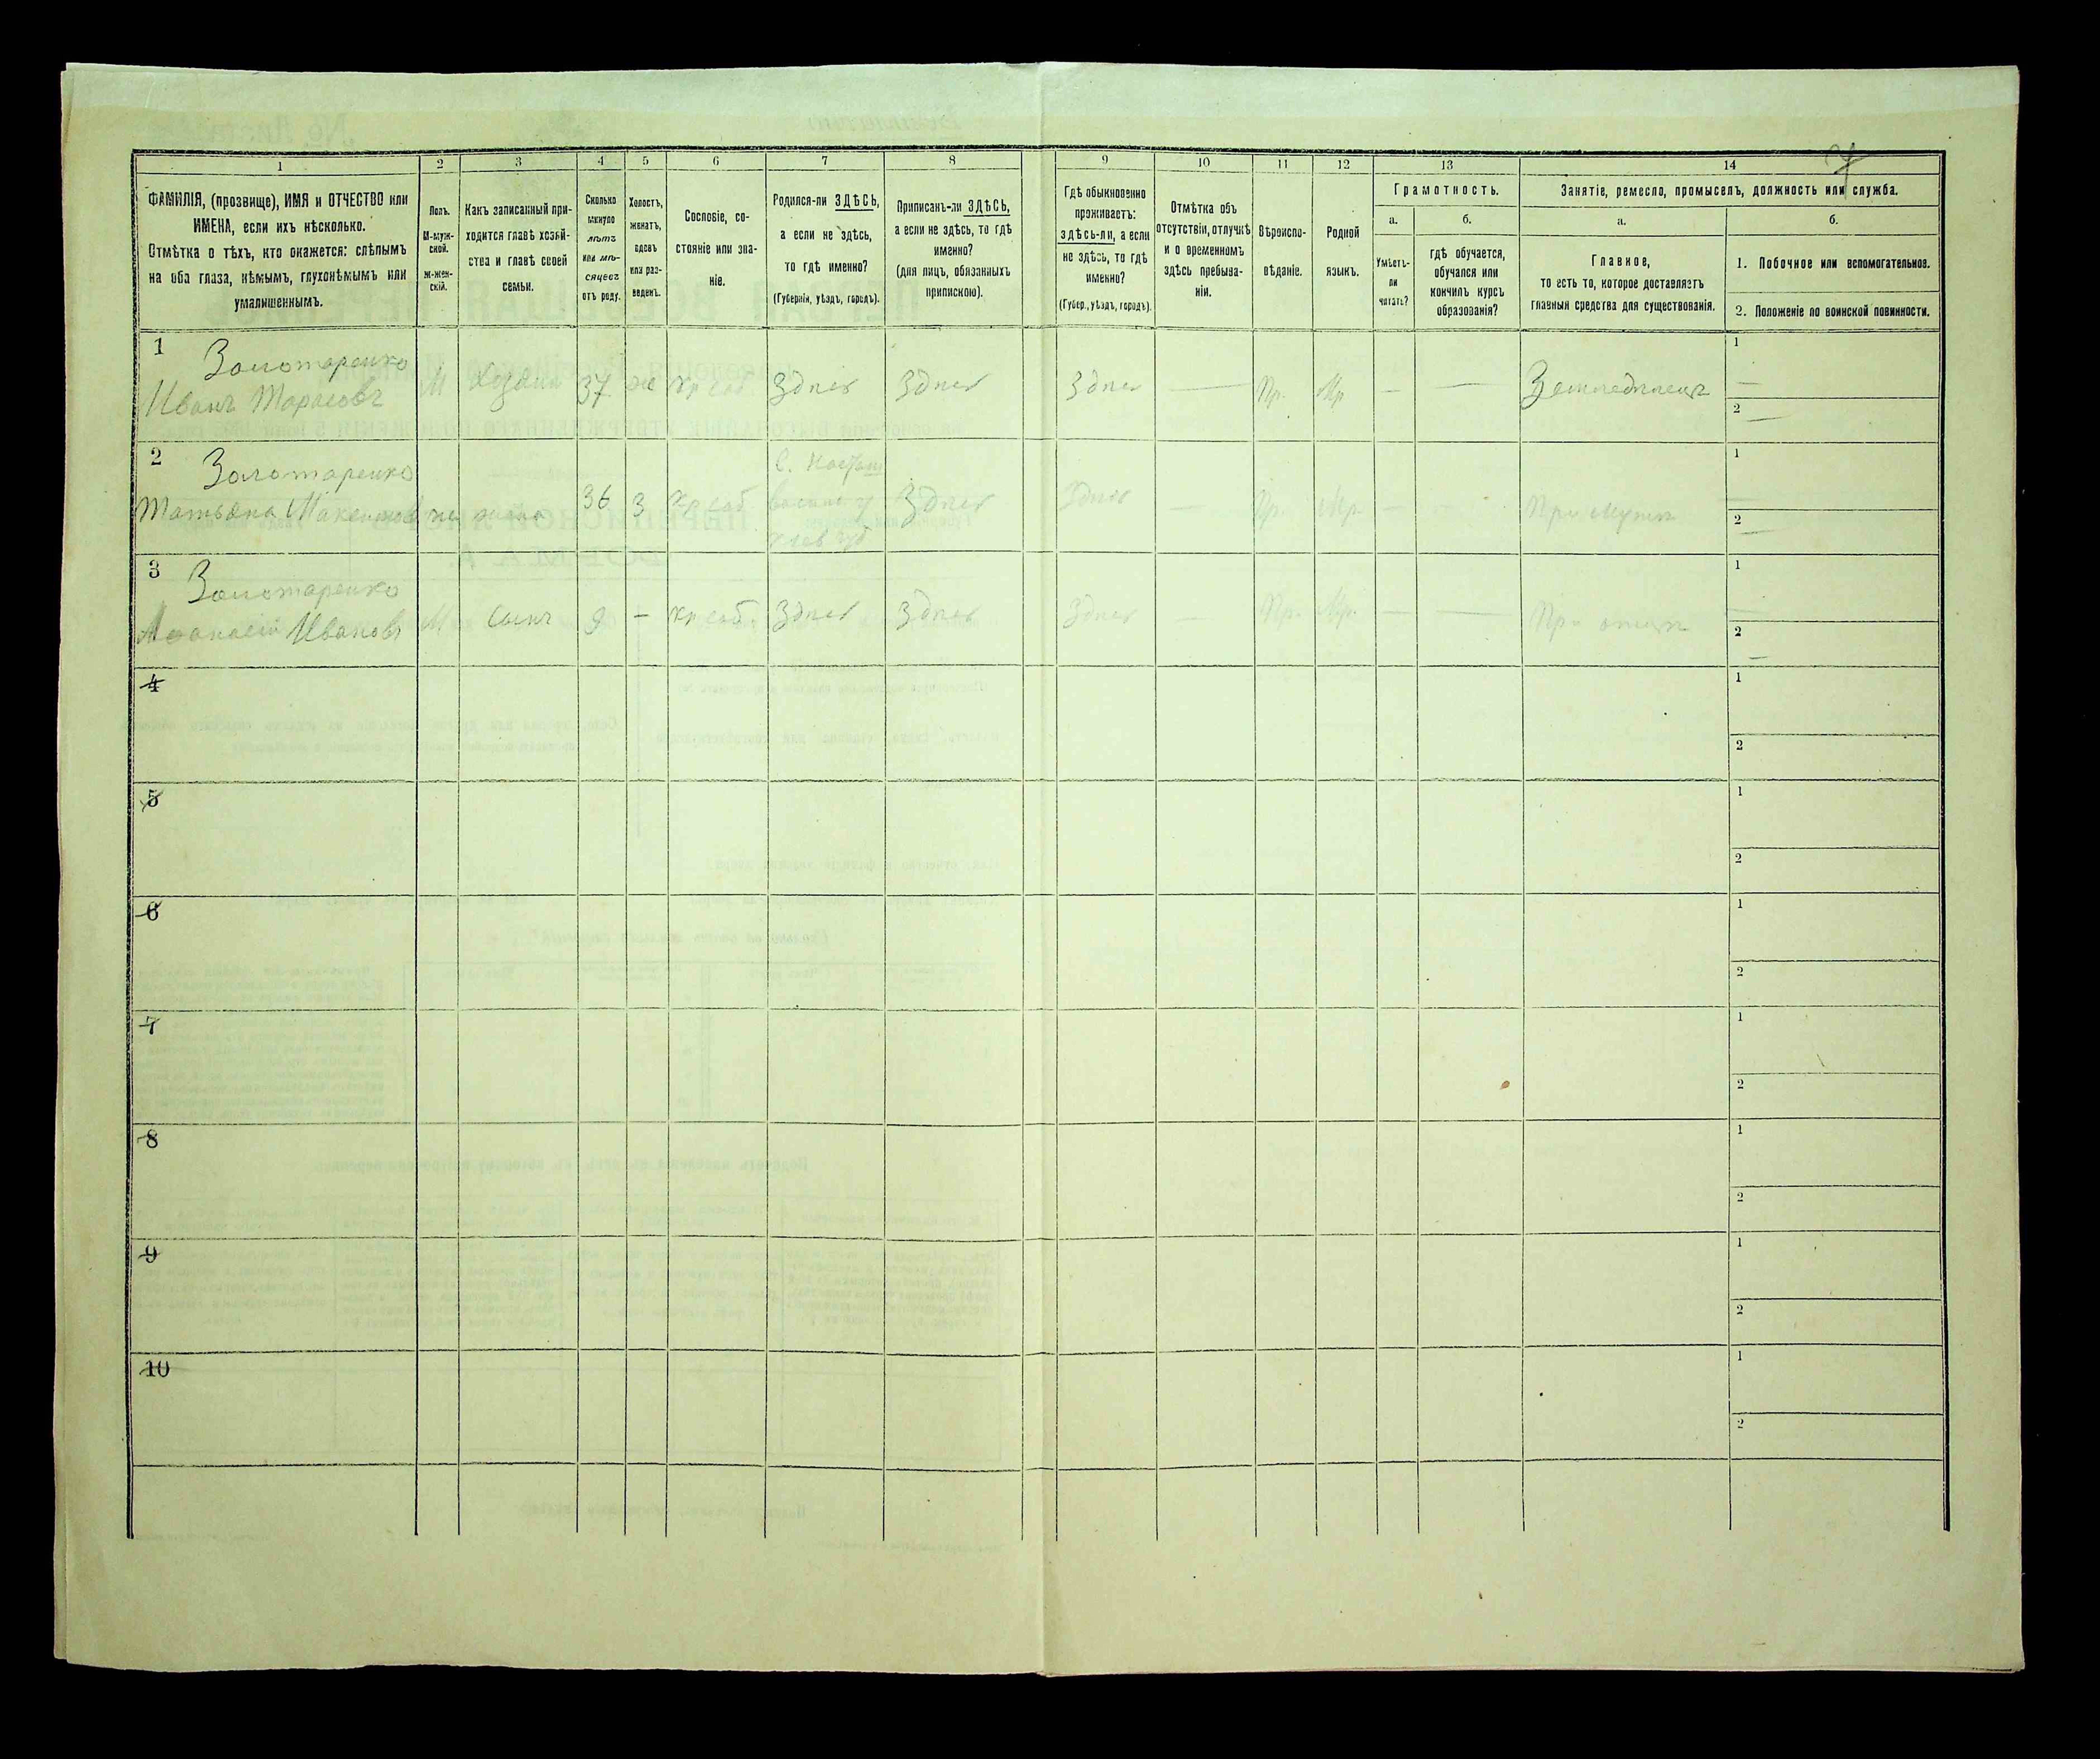 1 2 3 4 5 6 7 8 9 10 11 12 13 14
ФАМИЛІЯ, (прозвище), ИМЯ и ОТЧЕСТВО или
ИМЕНА, если ихъ нѣсколько.
Отмѣтка о тѣхъ, кто окажется: слѣпымъ
на оба глаза, нѣмымъ, глухонѣмымъ или
умалишеннымъ.
Полъ.
М-муж-
ской.
ж-жен-
скій.
Какъ записанный при-
ходится главѣ хозяй-
ства и главѣ своей
семьи.
Сколько
минуло
лѣтъ
или мѣ-
сяцевъ
отъ роду.
Холостъ,
женатъ,
вдовъ
или раз-
веденъ.
Сословіе, со-
стояніе или зва-
ніе.
Родился-ли ЗДѢСЬ,
а если не здѣсь,
то гдѣ именно?
(Губернія, уѣздъ, городъ).
Приписанъ-ли ЗДѢСЬ,
а если не здѣсь, то гдѣ
именно?
(для лицъ, обязанныхъ
припискою).
Гдѣ обыкновенно
проживаетъ:
здѣсь-ли, а если
не здѣсь, то гдѣ
именно?
(Губер., уѣздъ, городъ).
Отмѣтка объ
отсутствіи, отлучкѣ
и о временномъ
здѣсь пребыва-
ніи.
Вѣроиспо-
вѣданіе.
Родной
языкъ.
Грамотность.
а.
Умѣетъ-
ли
читать?
б.
гдѣ обучается,
обучался или
кончилъ курсъ
образованія?
Занятіе, ремесло, промыселъ, должность или служба.
а.
Главное,
то есть то, которое доставляетъ
главныя средства для существованія.
б.
1. Побочное или вспомогательное.
2. Положеніе по воинской повинности.
1 Золотаренко
Иванъ Тарасовъ М Хозяинъ 37 ж Кр соб Здѣсь Здѣсь Здѣсь — Пр. Мр — — Земледѣлецъ
1 —
2 —
2 Золотаренко
Татьяна Максимов ж жена 36 з Кр соб Здѣсь Здѣсь — Пр. Мр. — — При мужѣ
1 —
2 —
3 Золотаренко
Афанасій Ивановъ М Сынъ 9 — Кр соб. Здѣсь Здѣсь Здѣсь — Пр. Мр. — — При отцѣ
1 —
2 —
4
1
2
5
1
2
6
1
2
7
1
2
8
1
2
9
1
2
10
1
2